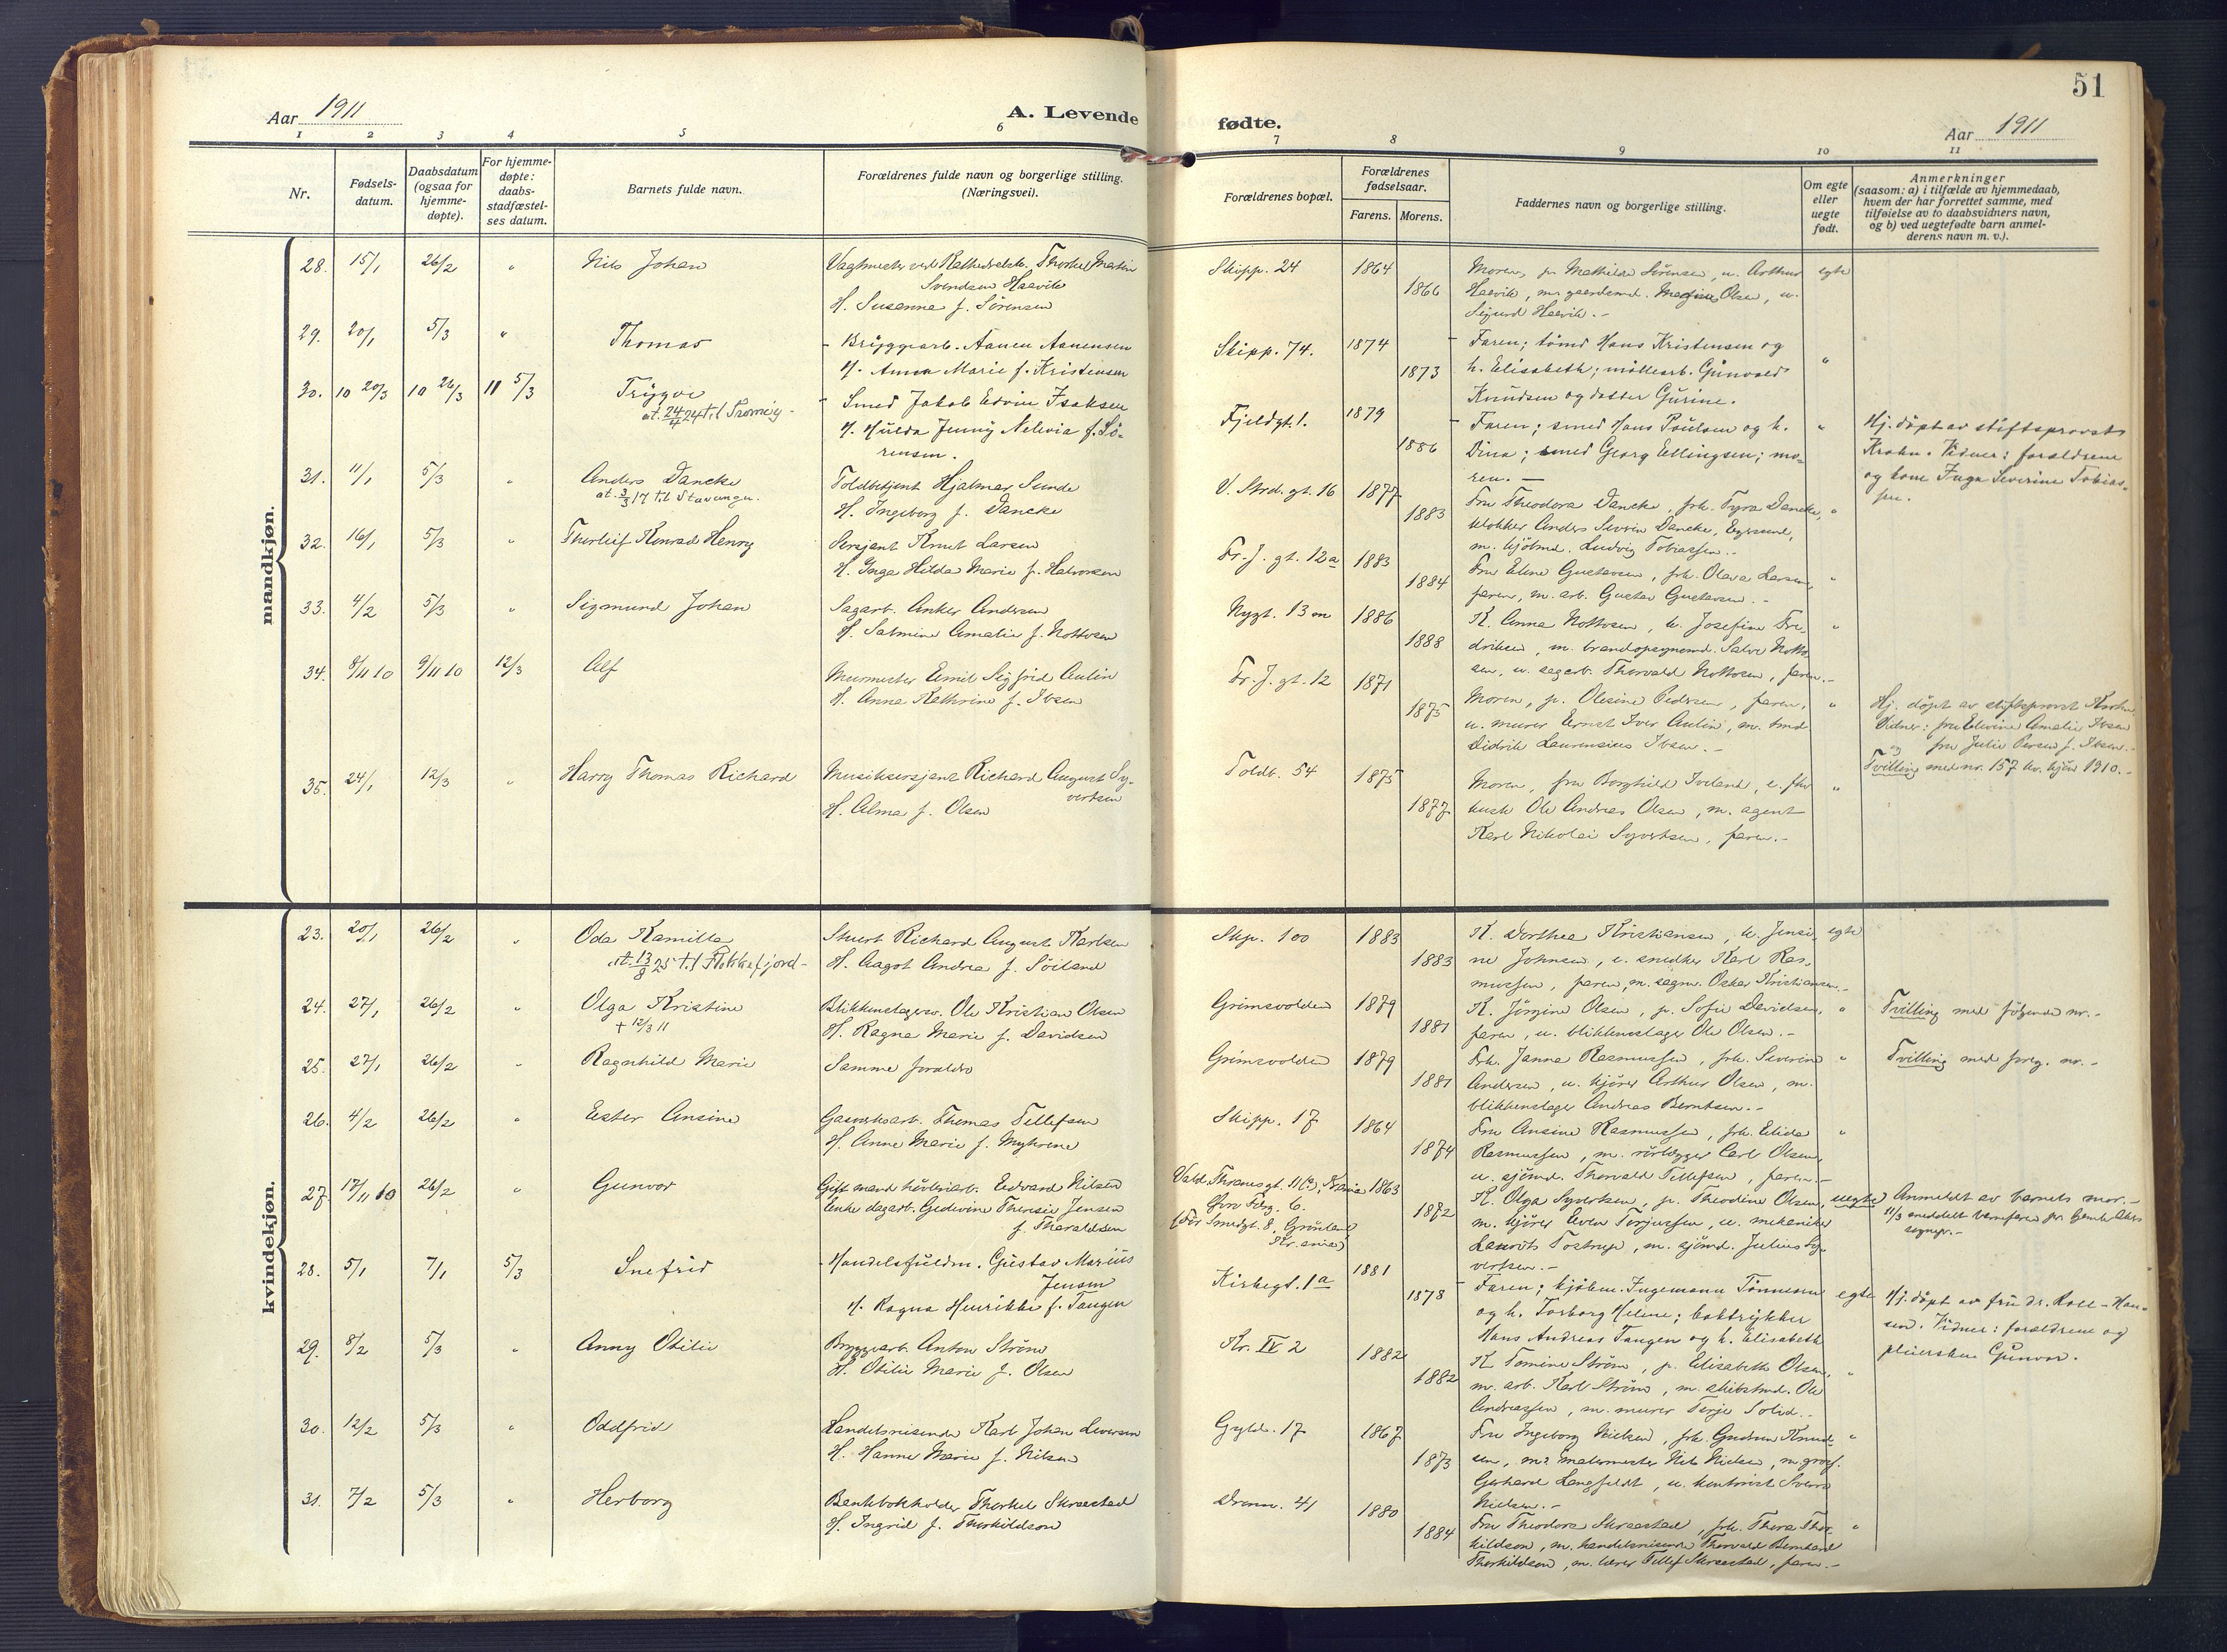 51
Aar 1911
A. Levende
fødte.
Aar 1911
1 2 3 4 5 6 7 8 9 10 11
Nr.
Fødsels-
datum.
Daabsdatum
(ogsaa for
hjemme-
døpte).
For hjemme-
døpte:
daabs-
stadfæstel-
ses datum.
Barnets fulde navn.
Forældrenes fulde navn og borgerlige stilling.
(Næringsvei).
Forældrenes bopæl.
Forældrenes
fødselsaar.
Farens. Morens.
Faddernes navn og borgerlige stilling.
Om egte
eller
uegte
født.
Anmerkninger
(saasom: a) i tilfælde av hjemmedaab,
hvem der har forrettet samme, med
tilføielse av to daabsvidners navn,
og b) ved uegtefødte barn anmel-
derens navn m. v.).
mandkjøn.
28. 15/1 26/2 " Nils Johan
Thorkel Martin
Svendsen Haavik
H. Susanne f. Sørensen
Skipp. 24 1864 1866
Moren, p. Mathilde Sørensen, u. Arthur
Haavik, m. Olsen, u.
Sigurd Haavik. -
egte
29. 20/1 5/3 " Thomas
Bryggearb. Aanen Aanensen
H. Anna Marie f. Kristensen
Skipp. 74. 1874 1873
Faren; tømd Hans Kristensen og
h. Elisabeth; møllearb. Gunvald
Knudsen og datter Gurine.
"
30. 10 20/3 10 26/3 11 5/3 Trygve
at. 24/4 24 til Tromøy -
Smed Jakob Edvin Isaksen
H. Hulda Jenny Nelevia f. Sø-
rensen.
Fjeldgt. 1. 1879 1886
Faren; smed Hans Poulsen og h.
Dina; smed Georg Ellingsen; mo-
ren. -
"
Hj. døpt av stiftsprovst
Krohn. Vidner: forældrene
og kone Inga Severine Tobias-
sen.
31. 11/1 5/3 " Anders Dancke
at. 3/3 17 til Stavanger.
Toldbetjent Hjalmar Sunde
H. Ingeborg f. Dancke
V. Strd. gt. 16 1877 1883
Fru Theodora Dancke, frk. Tyra Dancke,
klokker Anders Severin Dancke, Egersund,
m. kjøbmd. Ludvig Tobiassen. -
"
32. 16/1 5/3 " Thorleif Konrad Henry
Sersjant Knut Larsen
H. Inga Hilda Marie f. Halvorsen
Fr. J. gt. 12a 1883 1884
Fru Elene Gustavsen, frk. Olava Larsen,
faren, m. arb. Gustav Gustavsen. -
"
33. 4/2 5/3 " Sigmund Johan
Sagarb. Anker Andersen
H. Salmine Amalie f. Nottosen
Nygt. 13 1886 1888
K. Anna Nottosen, k. Josefine Fre-
driksen, m. brandopsynsmd. Salve Notto-
sen, u. sagarb. Thorvald Nottosen, faren. -
"
34. 8/11 10 9/11 10 12/3 Alf
Murmester Emil Sigfrid Aulin
H. Anna Kathrine f. Ibsen
Fr. J. gt. 12 1871 1875
Moren, p. Olesine Pedersen, faren,
u. murer Ernst Iver Aulin, m. smd
Didrik Laurensius Ibsen. -
"
Hj. døpt av stiftsprovst Krohn.
Vidner: fru Edvine Amalie Ibsen
og fru Julie Persen f. Ibsen. -
Tvilling med nr. 157 kv. kjøn 1910. -
35. 24/1 12/3 " Harry Thomas Richard
Musiksersjant Richard August Sy-
vertsen
H. Alma f. Olsen
Toldb. 54 1875 1877
Moren, fru Borghild Iveland,
Ole Andreas Olsen, m. agent
Karl Nikolai Syvertsen, faren. -
"
kvindekjøn.
23. 20/1 26/2 " Oda Kamilla
at. 13/8 25 til Flekkefjord -
Stuert Richard August Karlsen
H. Aagot Andrea f. Søiland
Skp. 100 1883 1883
K. Dorthea Kristiansen, k. Jensi-
ne Johnsen, u. snedker Karl Ras-
mussen, faren, m. sagm. Oskar Kristiansen. -
egte
24. 27/1 26/2 " Olga Kristine
+ 12/3 11
Blikkenslagersv. Ole Kristian Olsen
H. Ragna Marie f. Davidsen
Grimsvolden 1879 1881
K. Jørgine Olsen, p. Sofie Davidsen,
faren, u. blikkenslager Ole Olsen. -
"
Tvilling med følgende nr. -
25. 27/1 26/2 " Ragnhild Marie
Samme foraldre
Grimsvolden 1879 1881
Frk. Janna Rasmussen, frk. Severine
Andersen, u. kjører Arthur Olsen, m.
blikkenslager Andreas Berntsen. -
"
Tvilling med foreg. nr. -
26. 4/2 26/2 " Ester Ansine
Gasverksarb. Thomas Tellefsen
H. Anne Marie f. Myhrene
Skipp. 17 1864 1874
Fru Ansine Rasmussen, frk. Elida
Rasmussen, m. rørlægger Carl Olsen,
u. sjømd. Thorvald Tellefsen, faren. -
"
27. 17/11 10 26/2 " Gunvor
Gift mand høvleriarb. Edvard Nilsen
Enke dagarb. Gedevine Theresie Jensen
f. Tharaldsen
Vald. Thranesgt. 11 (c), Krania 1863
Øvre Tdrg. 6. 1872
(Før Smedgt. 8, Grønland,
Kr.ania)
K. Olga Syvertsen, p. Theodine Olsen,
m. kjører Even Terjussen, u. mekaniker
Laurits Tostrup, m. sjømd. Julius Sy-
vertsen. -
uegte
Anmeldt av barnets mor. -
11/3 meddelt barnefaren for Gamle Akers
sognepr. -
28. 5/1 7/1 5/3 Snefrid
Handelsfuldm. Gustav Marius
Jensen
H. Ragna Henrikke f. Tangen
Kirkegt. 1a 1881 1878
Faren; kjøbm. Ingemann Tønnesen
og h. Torborg Helene; boktrykker
Hans Andreas Tangen og h. Elisabeth
egte
Hj. døpt av fru dr. Roll-Han-
sen. Vidner: forældrene og
pleiersken Gunvor.
29. 8/2 5/3 " Anny Otilie
Bryggearb. Anton Strøm
H. Otilie Marie f. Olsen
Kr. IV 2 1882 1882
K. Tomine Strøm, p. Elisabeth Olsen,
m. arb. Karl Strøm, m. skibstmd. Ole
Andreassen, m. murer Terje Solid. -
"
30. 12/2 5/3 " Oddfrid
Handelsreisende Karl Johan Seversen
H. Hanne Marie f. Nilsen
Gyld. 17 1867 1873
Fru Ingeborg Nielsen, frk. Gudrun Knud-
sen, m. malermester Nils Nielsen, m. gross.
Gerhard Langfeldt, u. kontorist Sverre
Nielsen. -
"
31. 7/2 5/3 " Herborg
Bankbokholder Thorkel Skraastad
H. Ingrid f. Thorkildson
Dronn. 41 1880 1884
Fru Theodora Skraastad, frk. Thora Thor-
kildson, m. handelsreisende Thorvald Bernhard
Thorkildson, m. lærer Tellef Skraastad, faren. -
"